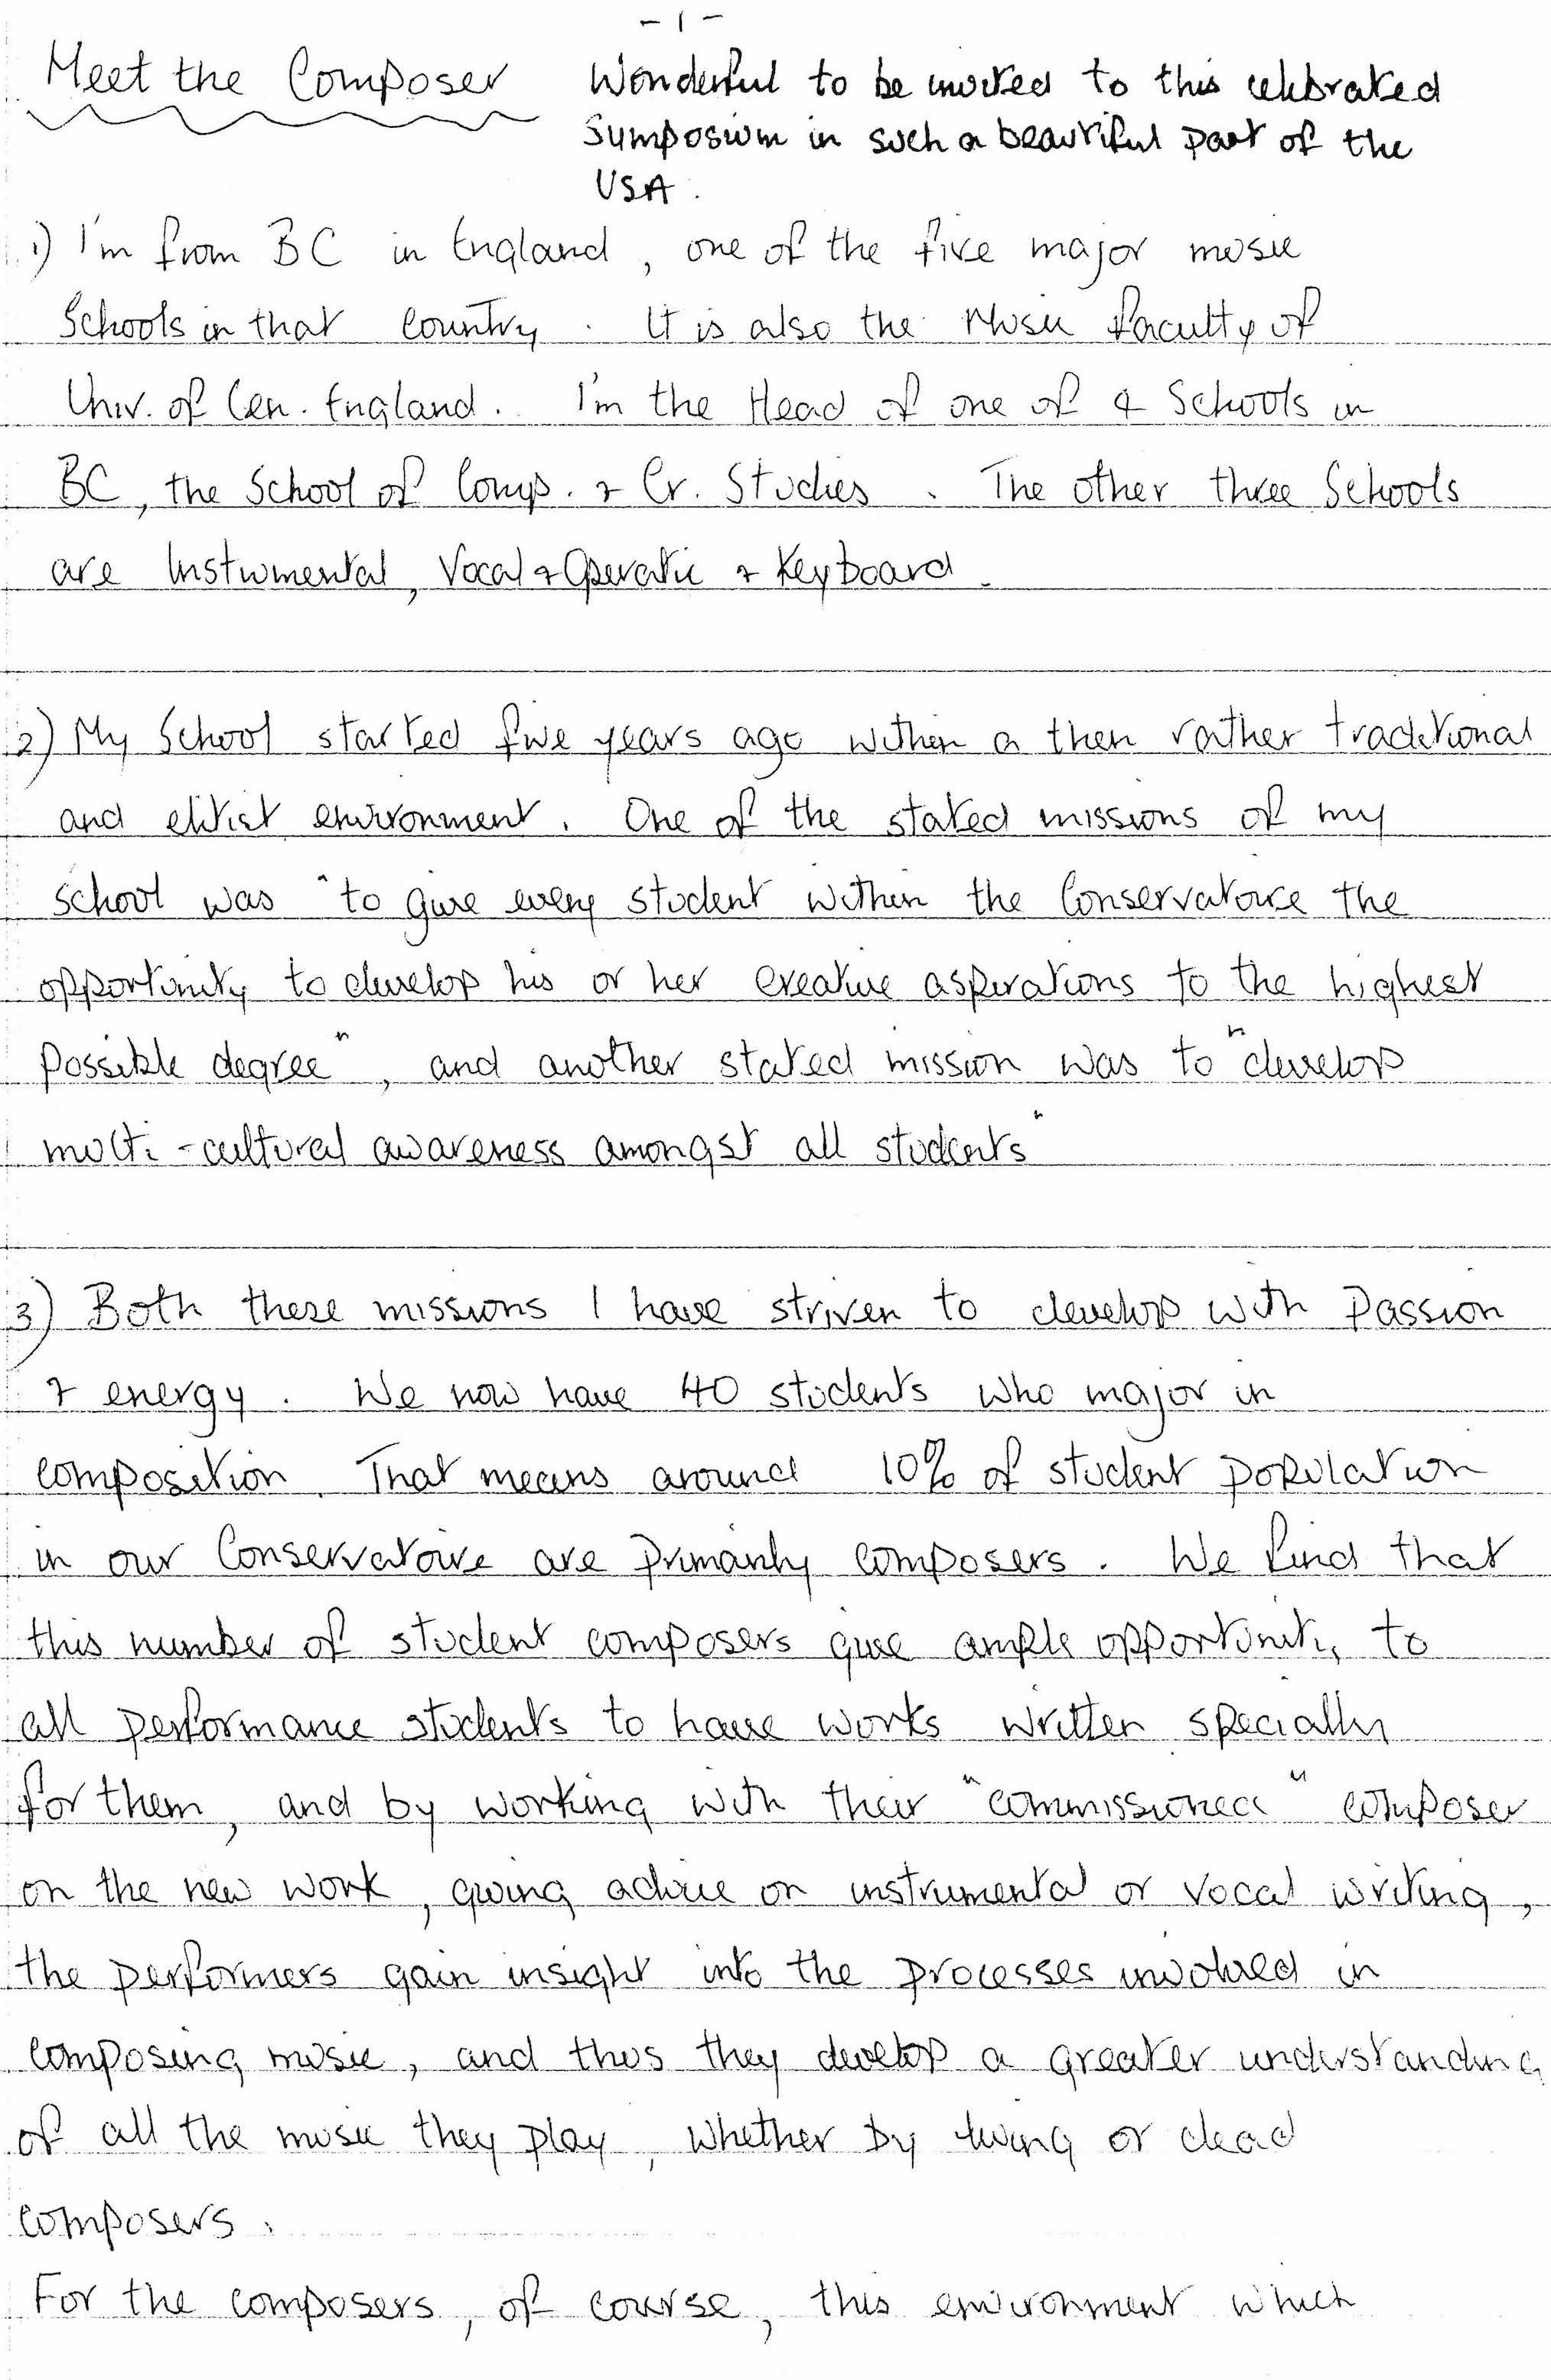 - 1 -
Meet the Composer
Wonderful to be invited to this celebrated
Sumposium in such a beautiful part of the
USA.
1) I'm from BC in England, one of the five major music
Schools in that country. It is also the Music Faculty of
Univ. of Cen. England. I'm the Head of one of 4 Schools in
BC, the School of Comp. & Cr. Studies. The other three Schools
are Instrumental, Vocal & Operatic & Keyboard.
2) My School started five years ago within a then rather traditional
and elitist environment. One of the stated missions of my
school was "to give every student within the Conservatoire the
opportunity to develop his or her creative aspirations to the highest
possible degree", and another stated mission was to "develop
multi-cultural awareness amongst all students"
3) Both these missions I have striven to develop with passion
& energy. We now have 40 students who major in
composition. That means around 10% of student population
in our Conservatoire are primarily composers. We find that
this number of student composers give ample opportunity to
all performance students to have works written specially
for them, and by working with their "commissioned" composer
on the new work, giving advice on instrumental or vocal writing,
the performers gain insight into the processes involved in
composing music, and thus they develop a greater understanding
of all the music they play, whether by living or dead
composers.
For the composers, of course, this environment which